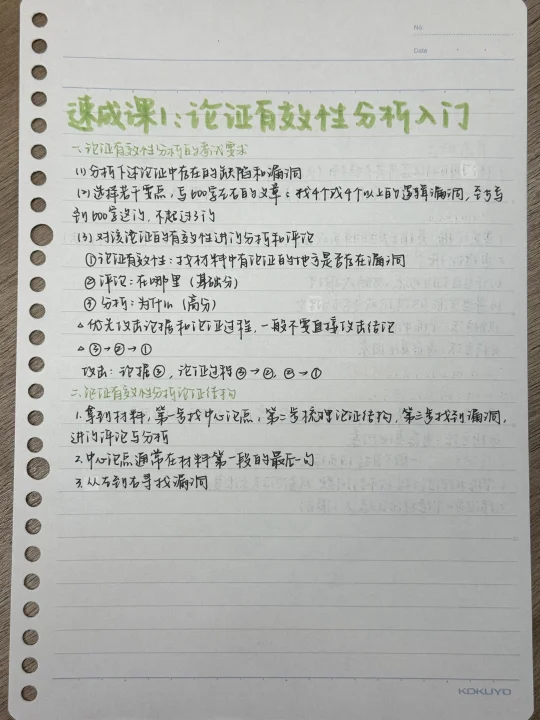 No.
Date
速成课1:论证有效性分析入门
一、论证有效性分析的考试要求
(1)分析下述论证中存在的缺陷和漏洞
(2)选择若干要点,写600字左右的文章:找4个或4个以上的逻辑漏洞,至少写
到600字这行,不超过3行
(3)对该论证的有效性进行分析和评论
①论证有效性:找材料中有论证的地方是否存在漏洞
②评论:在哪里(基础分)
③分析:为什么(高分)
△优先攻击论据和论证过程,一般不要直接攻击结论
△③→②→①
攻击:论据③,论证过程③→②,②→①
二、论证有效性分析论证结构
1.拿到材料,第一步找中心论点,第二步梳理论证结构,第三步找到漏洞,
进行评论与分析
2.中心论点通常在材料第一段的最后一句
3.从左到右寻找漏洞
KOKUYO